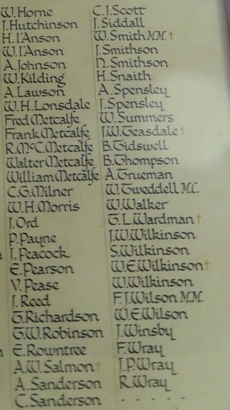 W. Horne
J. Hutchinson
H. I'Anson
W. I'Anson
A. Johnson
W. Kilding
A. Lawson
W. H. Lonsdale
Fred Metcalfe
Frank Metcalfe
R. McC. Metcalfe
Walter Metcalfe
William Metcalfe
C. G. Milner
W. H. Morris
J. Ord
P. Payne
J. Peacock
E. Pearson
V. Pease
J. Reed
G. Richardson
G. W. Robinson
E. Rowntree
A. W. Salmon †
A. Sanderson
C. Sanderson
C. J. Scott
J. Siddall
W. Smith M.M. †
J. Smithson
N. Smithson
H. Snaith
A. Spensley
J. Spensley
W. Summers
J. W. Teasdale †
B. Tidswell
B. Thompson
A. Trueman
W. Tweddell M.C.
W. Walker
T. L. Wardman †
J. W. Wilkinson
S. Wilkinson
W. E. Wilkinson †
W. Wilkinson
F. J. Wilson M.M.
W. E. Wilson
J. Winsby
F. Wray
J. P. Wray
R. Wray